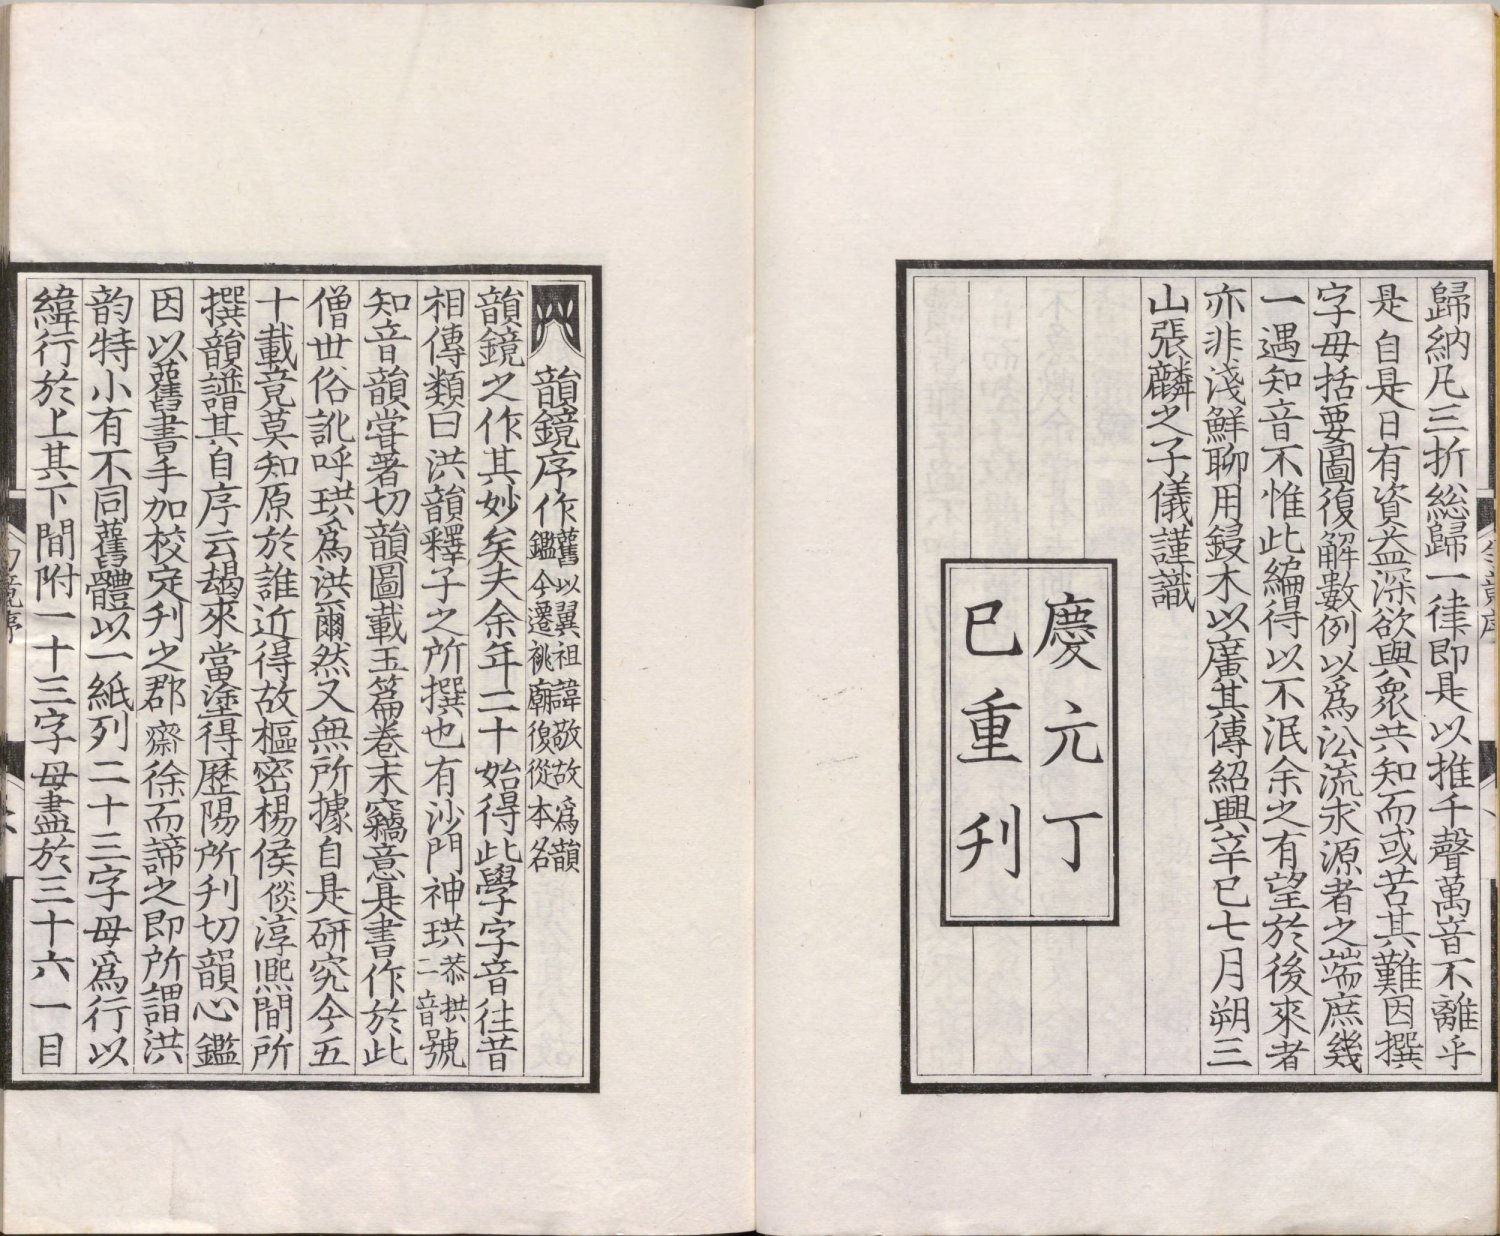 歸納凡三折総歸一律即是以推千聲萬音不離乎
是自是日有資益深欲與衆共知而或苦其難因撰
字母括要圖復解數例以爲㳂流求源者之端庶幾
一遇知音不惟此編得以不泯余之有望於後來者
亦非淺鮮聊用鋟木以廣其傳紹興辛巳七月朔三
山張麟之子儀謹識
慶元丁
巳重刋
韻鏡序作舊以翼祖諱敬故爲韻
鑑今遷祧廟復從本名
韻鏡之作其妙矣夫余年二十始得此學字音往昔
相傳類曰洪韻釋子之所撰也有沙門神珙恭拱二音號
知音韻甞著切韻圖載玉篇卷末竊意是書作於此
僧世俗訛呼珙爲洪爾然又無所據自是研究今五
十載竟莫知原於誰近得故樞密楊侯倓淳熙間所
撰韻譜其自序云朅來當塗得歷陽所刋切韻心鑑
因以舊書手加校定刋之郡齋徐而諦之即所謂洪
韵特小有不同舊體以一紙列二十三字母爲行以
緯行於上其下間附一十三字母盡於三十六一目